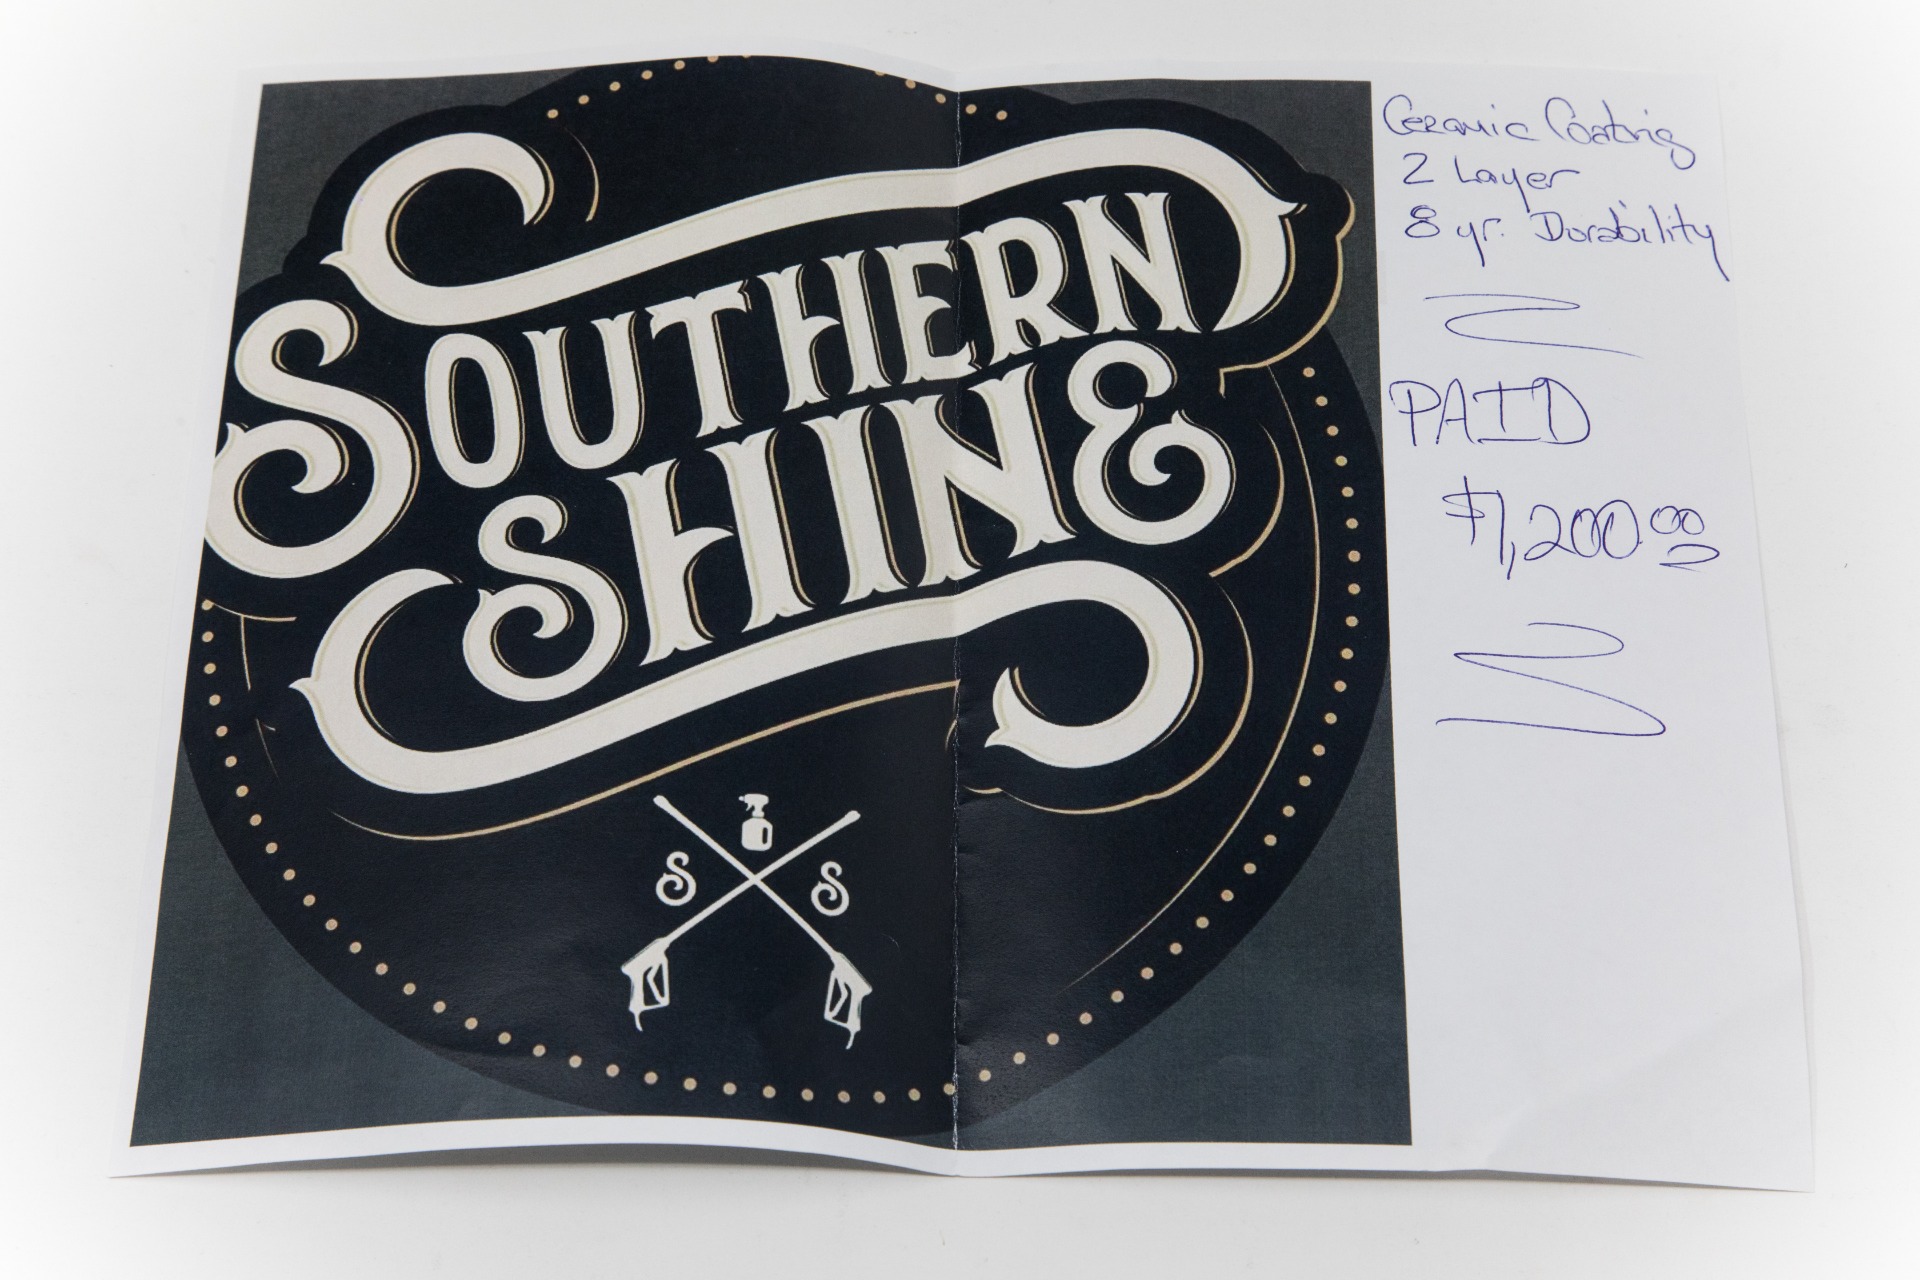 SOUTHERN
SHINE
S S
Ceramic Coating
2 Layer
8 yr. Durability
PAID
$1,200.00